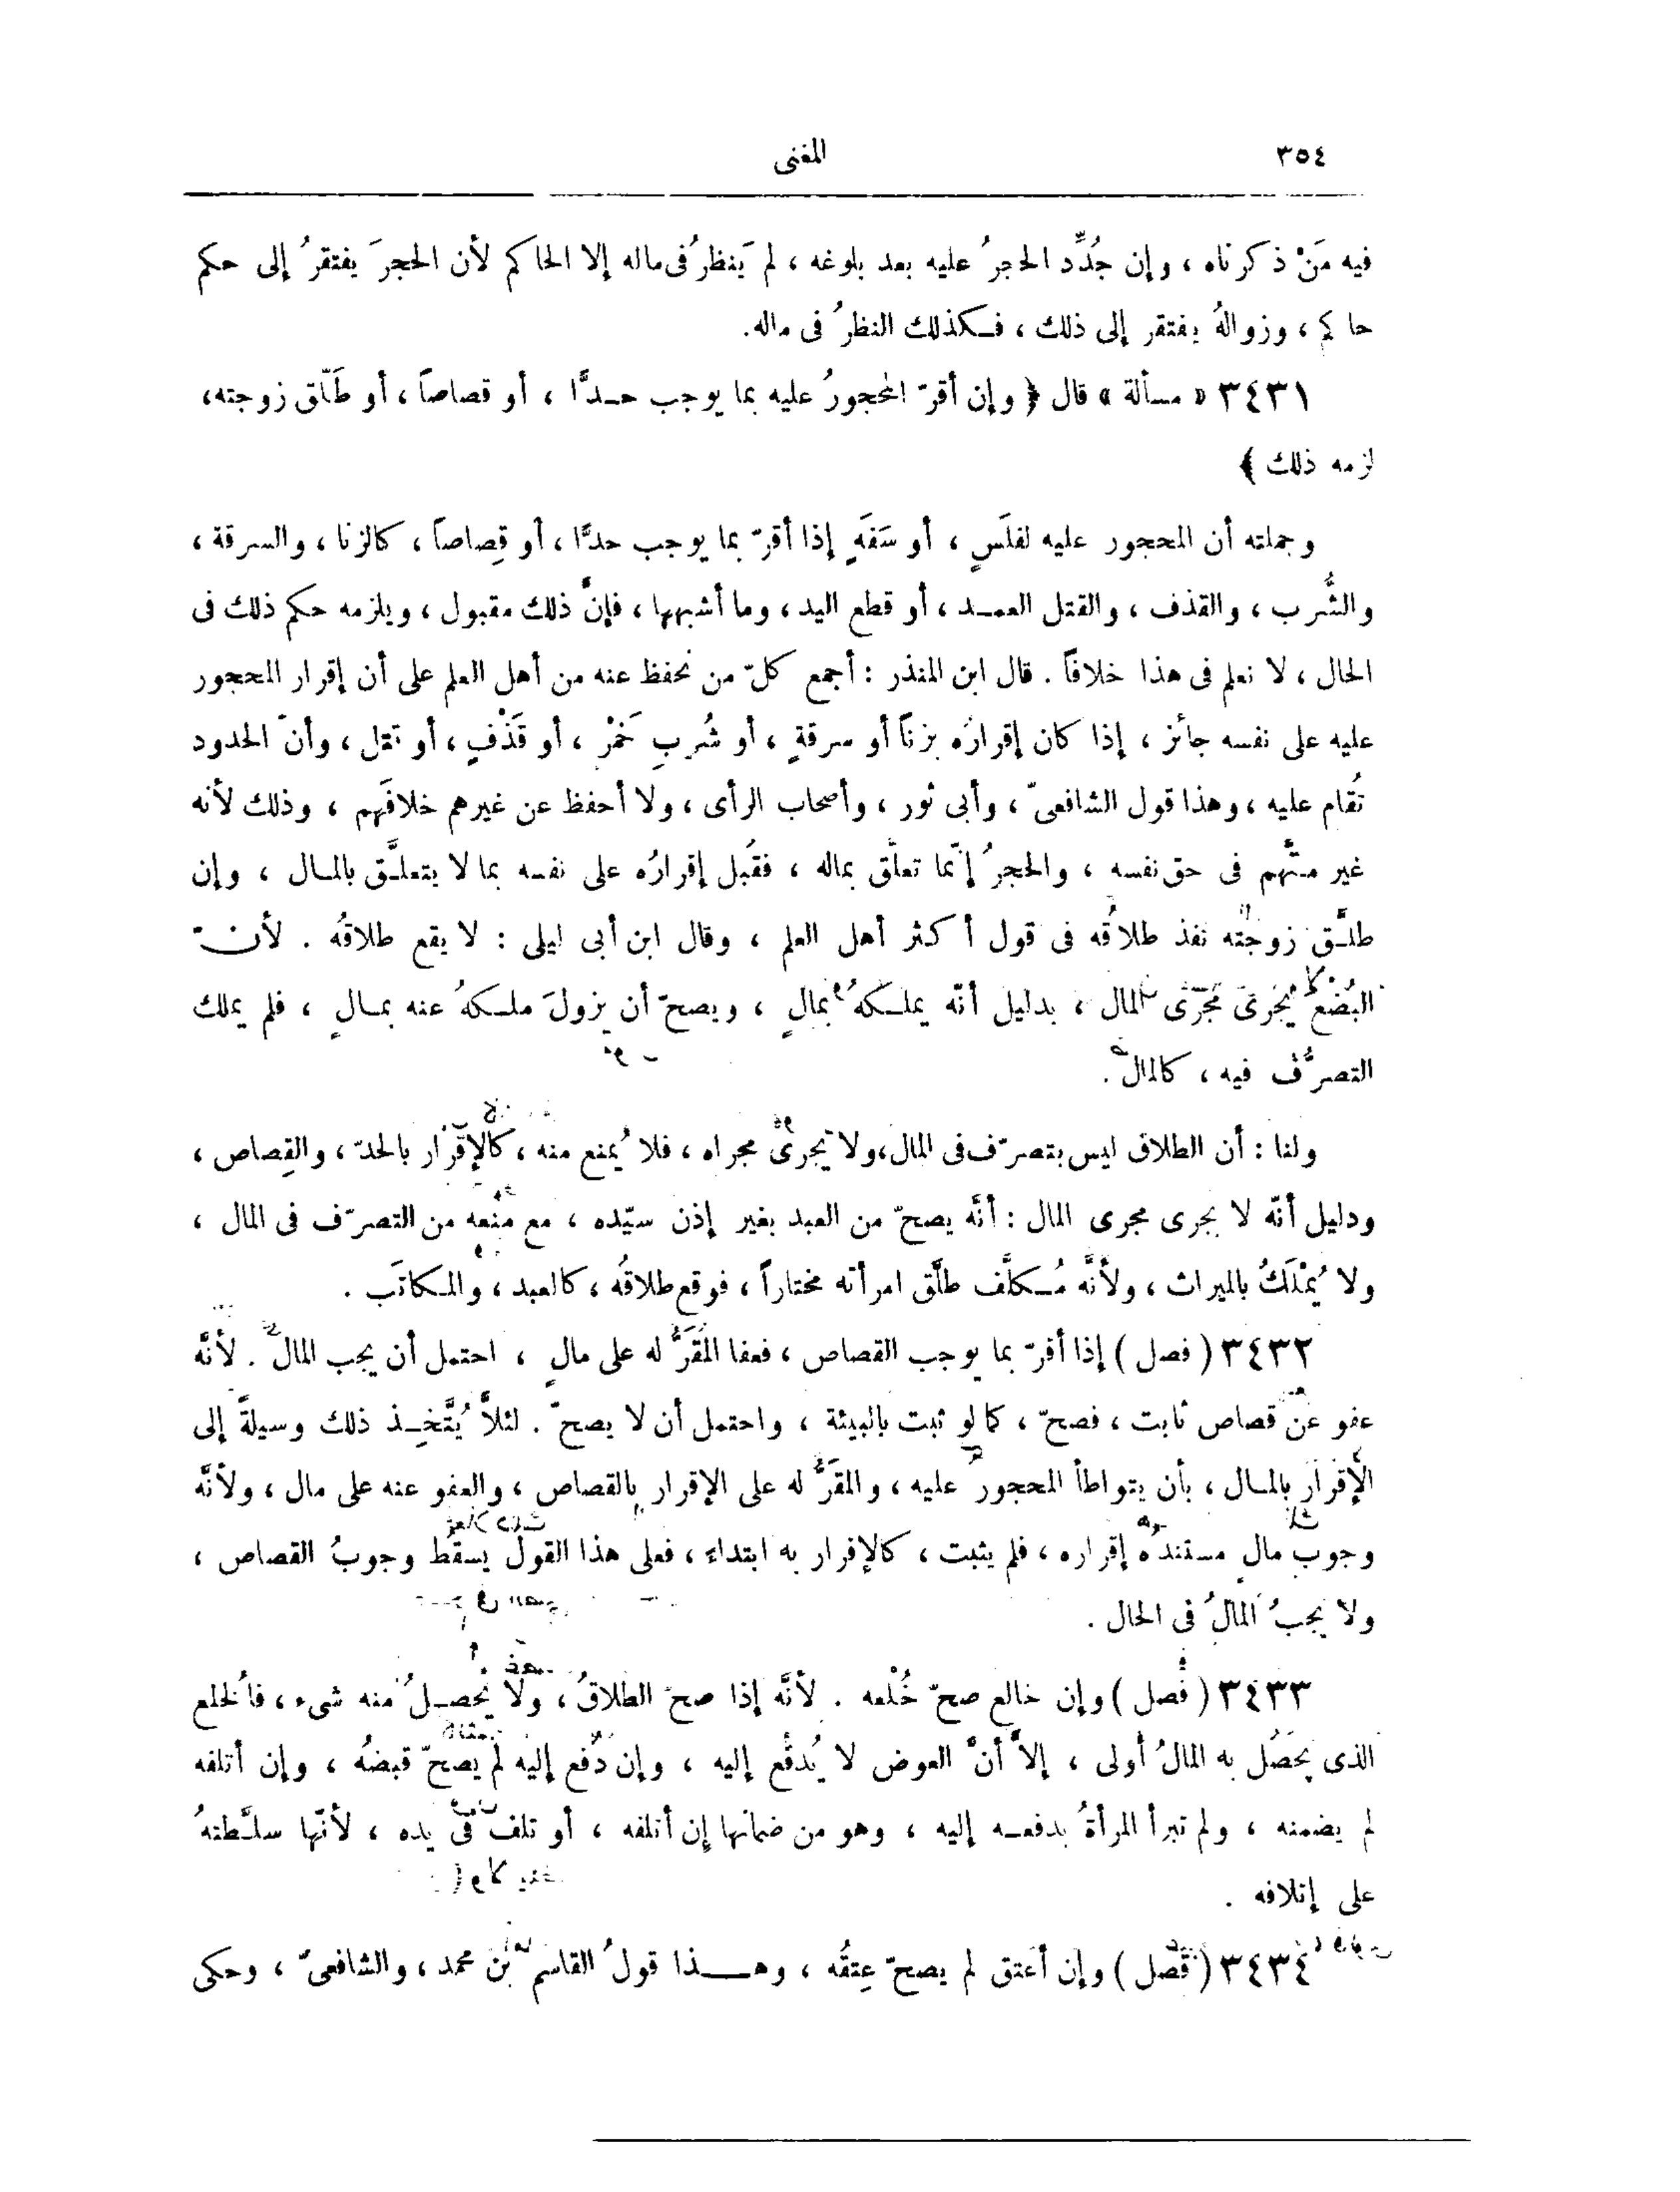 ٣٥٤ المغنى
فيه مَنْ ذكرناه ، وإن جُدِّد الحجرُ عليه بعد بلوغه ، لم يَنظرُ فى ماله إلا الحاكم لأن الحجرَ يفتقرُ إلى حكم
حاكم ، وزوالهُ يفتقر إلى ذلك ، فكذلك النظرُ فى ماله.
٣٤٣١ « مسألة » قال ﴿ وإن أقرّ المحجورُ عليه بما يوجب حدًّا ، أو قصاصاً ، أو طَلّق زوجته،
لزمه ذلك ﴾
وجملته أن المحجور عليه لفلَسٍ ، أو سَفَهٍ إذا أقرّ بما يوجب حدًّا ، أو قِصاصاً ، كالزنا ، والسرقة ،
والشُّرب ، والقذف ، والقتل العمد ، أو قطع اليد ، وما أشبهها ، فإنَّ ذلك مقبول ، ويلزمه حكم ذلك فى
الحال ، لا نعلم فى هذا خلافاً . قال ابن المنذر : أجمع كلّ من نحفظ عنه من أهل العلم على أن إقرار المحجور
عليه على نفسه جائز ، إذا كان إقرارُه بزناً أو سرقةٍ ، أو شُربِ خَمْر ، أو قَذْفٍ ، أو قتل ، وأنّ الحدود
تُقام عليه ، وهذا قول الشافعىّ ، وأبى ثور ، وأصحاب الرأى ، ولا أحفظ عن غيرهم خلافَهم ، وذلك لأنه
غير متَّهم فى حق نفسه ، والحجرُ إنّما تعلّق بماله ، فقُبل إقرارُه على نفسه بما لا يتعلَّق بالمال ، وإن
طلَّق زوجتُه نفذ طلاقُه فى قول أكثر أهل العلم ، وقال ابن أبى ليلى : لا يقع طلاقُه . لأنّ
البُضْع يَجْرِىَ مَجْرَى المال ، بدليل أنّه يملكهُ بمالٍ ، ويصحّ أن يزولَ ملكهُ عنه بمالٍ ، فلم يملك
التصرُّف فيه ، كالمال .
ولنا : أن الطلاق ليس بتصرّف فى المال،ولا يجرى مجراه ، فلا يُمنع منه ، كالإقرار بالحدّ ، والقِصاص ،
ودليل أنّه لا يجرى مجرى المال : أنَّه يصحّ من العبد بغير إذن سيّده ، مع منعه من التصرّف فى المال ،
ولا يُمْلَكُ بالميراث ، ولأنَّه مُكلَّف طلَّق امرأته مختاراً ، فوقع طلاقُه ، كالعبد ، والمكاتَب .
٣٤٣٢ ( فصل ) إذا أقرّ بما يوجب القصاص ، فعفا المُقَرُّ له على مالٍ ، احتمل أن يجب المال . لأنَّه
عفو عن قصاص ثابت ، فصحّ ، كما لو ثبت بالبينة ، واحتمل أن لا يصحّ . لئلاَّ يُتَّخِذ ذلك وسيلةً إلى
الإقرار بالمال ، بأن يتواطأ المحجور عليه ، والمقَرُّ له على الإقرار بالقصاص ، والعفو عنه على مال ، ولأنَّه
وجوب مالٍ مستندُه إقراره ، فلم يثبت ، كالإقرار به ابتداء ، فعلى هذا القول يسقُط وجوبُ القصاص ،
ولا يجبُ المالُ فى الحال .
٣٤٣٣ ( فصل ) وإن خالع صحّ خُلْعه . لأنَّه إذا صحّ الطلاقُ ، ولا يحصلُ منه شىء ، فالخلع
الذى يحَصُل به المالُ أولى ، إلاَّ أنَّ العوض لا يُدفَع إليه ، وإن دُفع إليه لم يصحّ قبضُه ، وإن أتلفه
لم يضمنه ، ولم تبرأ المرأةُ بدفعه إليه ، وهو من ضمانها إن أتلفه ، أو تلف فى يده ، لأنّها سلَّطتهُ
على إتلافه .
٣٤٣٤ ( فصل ) وإن أعتق لم يصحّ عِتقُه ، وهذا قولُ القاسم بن محمد ، والشافعىّ ، وحكى